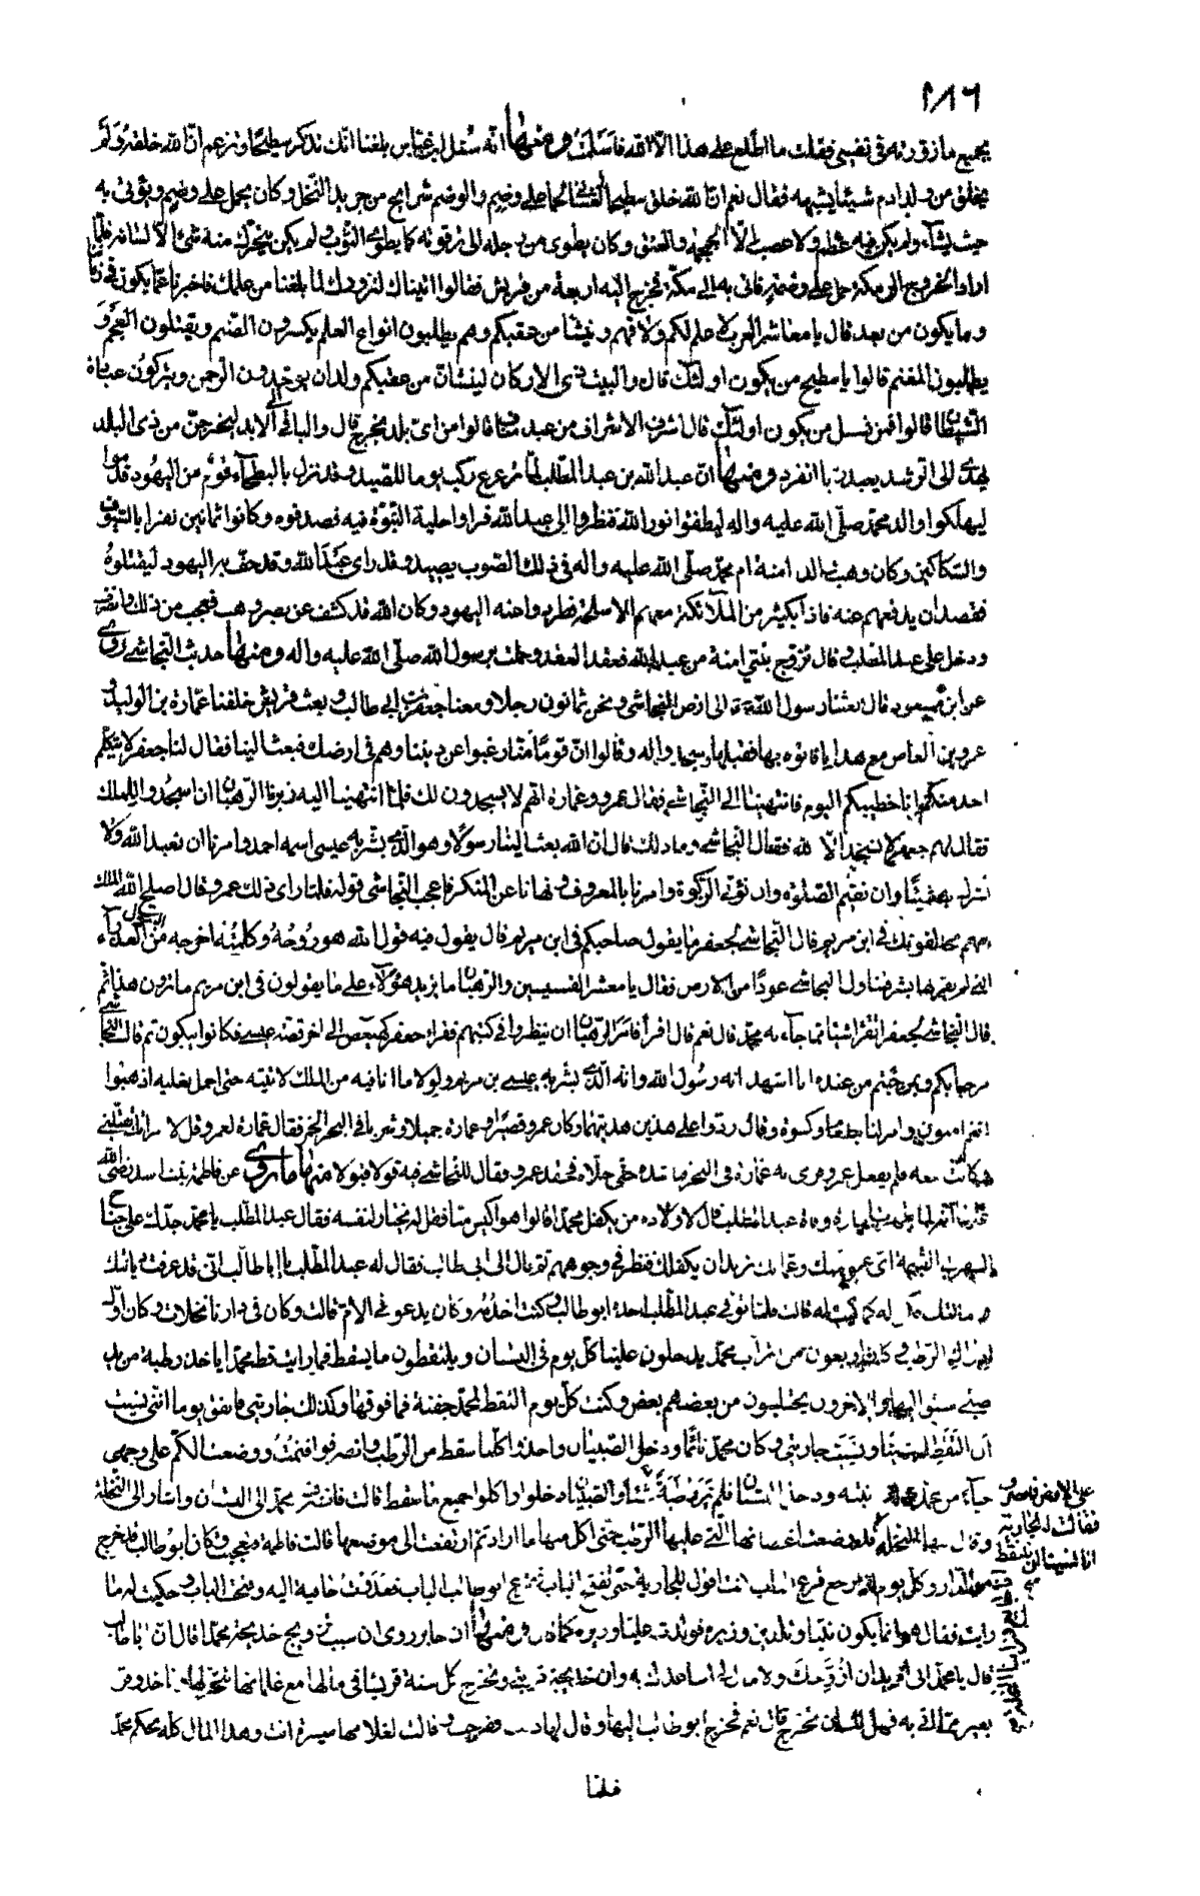 ٢٨٦
بجميع ما زورته في نفسي فقلت ما اطلع على هذا الا الله فاسلمت ومنها انه سئل ابن عباس بلغنا انك تذكر سطيحا وتزعم ان الله خلقه ولم
يخلق من ولد ادم شيئا يشبهه فقال نعم ان الله خلق سطيحا لحما على وضم والوضم شرايح من جريد النخل وكان يحمل على وضم ويؤتى به
حيث يشاء ولم يكن فيه عظم ولا عصب الا الجمجمة والعنق وكان يطوى من رجله الى ترقوته كما يطوى الثوب ولم يكن يتحرك منه شئ الا لسانه فلما
اراد الخروج الى مكة حمل على وضمه فاتى به الى مكة فخرج اليه اربعة من قريش فقالوا اتيناك لنزورك لما بلغنا من علمك فاخبرنا عما يكون في زماننا
وما يكون من بعد قال يا معاشر العرب لا علم لكم ولا فهم وينشأ من عقبكم دهم يطلبون انواع العلم يكسرون الصنم ويقتلون العجم و
يطلبون المغنم قالوا يا سطيح من يكون اولئك قال والبيت ذى الاركان لينشأن من عقبكم ولدان يوحدون الرحمن ويتركون عبادة
الشيطان قالوا فمن نسل من يكون اولئك قال اشرف الاشراف من عبد مناف قالوا من اى بلد يخرج قال والباقى الى الابد ليخرجن من ذى البلد
يهدى الى الرشد يعبد ربا انفرد ومنها ان عبد الله بن عبد المطلب لما ترعرع ركب يوما للصيد وقد نزل بالبطحاء قوم من اليهود قدموا
ليهلكوا والد محمد صلى الله عليه واله ليطفئوا نور الله فنظروا الى عبد الله فراوا حلية النبوة فيه فقصدوه وكانوا ثمانين نفرا بالسيوف
والسكاكين وكان وهب والد امنة ام محمد صلى الله عليه واله في ذلك الصوب يصيد وقد راى عبد الله وقد حف به اليهود ليقتلوه
فقصد ان يدفعهم عنه فاذا بكثير من الملائكة معهم الاسلحة طردوا عنه اليهود وكان الله قد كشف عن بصر وهب فتعجب من ذلك وانصرف
ودخل على عبد المطلب وقال تزوج بنتي امنة من عبد الله فعقد العقد وحملت برسول الله صلى الله عليه واله ومنها حديث النجاشى روى
عن ابن مسعود قال بعثنا رسول الله الى ارض النجاشى ونحن ثمانون رجلا ومعنا جعفر بن ابي طالب وبعث قريش خلفنا عمارة بن الوليد و
عمرو بن العاص مع هدايا فاتوه بها فقبلها وسجدوا له وقالوا ان قوما منا رغبوا عن ديننا وهم في ارضك فبعث الينا فقال لنا جعفر لا يتكلم
احد منكم انا خطيبكم اليوم فانتهينا الى النجاشى فقال عمرو وعمارة انهم لا يسجدون لك فلما انتهينا اليه زبرنا الرهبان ان اسجدوا للملك
فقال لهم جعفر لا نسجد الا لله فقال النجاشى وما ذلك قال ان الله بعث الينا رسولا وهو الذى بشر به عيسى اسمه احمد وامرنا ان نعبد الله ولا
نشرك به شيئا وان نقيم الصلوة وان نؤتى الزكوة وامرنا بالمعروف ونهانا عن المنكر فاعجب النجاشى قوله فلما راى ذلك عمرو قال اصلح الله الملك
انهم يخالفونك في ابن مريم قال النجاشى لجعفر ما يقول صاحبكم في ابن مريم قال يقول فيه قول الله هو روح الله وكلمته اخرجه من العذراء البتول
التى لم يقربها بشر فتناول النجاشى عودا من الارض فقال يا معشر القسيسين والرهبان ما يزيد هؤلاء على ما يقولون في ابن مريم ما تزن هذه ثم
قال النجاشى لجعفر اتقرأ شيئا مما جاء به محمد قال نعم قال اقرأ فامر الرهبان ان ينظروا في كتبهم فقراء جعفر كهيعص الى اخر قصة عيسى فكانوا يبكون ثم قال النجاشى
مرحبا بكم وبمن جئتم من عنده انا اشهد انه رسول الله وانه الذى بشر به عيسى بن مريم ولولا ما انا فيه من الملك لاتيته حتى احمل نعليه اذهبوا
انتم امنون وامر لنا بطعام وكسوة وقال ردوا على هذين هديتهما وكان عمرو قصيرا وعمارة جميلا وشربا في البحر الخمر فقال عمارة لعمرو قل لامرأتك تقبلني
وكانت معه فلم يفعل عمرو فرمى به عمارة في البحر فناشده حتى خلاه فحقد عمرو فقال للنجاشى فيه قولا فنولا منها ما روى عن فاطمة بنت اسد رضى الله
عنها انه لما ظهرت امارة وفاة عبد المطلب قال لاولاده من يكفل محمدا قالوا هو اكيس منا فقل له يختار لنفسه فقال عبد المطلب يا محمد جدك على جناح
السفر الى القيمة اى عمومتك وعماتك تريد ان يكفلك فنظر في وجوههم ثم مال الى ابي طالب فقال له عبد المطلب يا ابا طالب انى قد عرفت ديانتك
وامانتك فكن له كما كنت له قالت فلما توفى عبد المطلب اخذه ابو طالب وكنت اخدمه وكان يدعونى الام قالت وكان في دارنا نخلات وكان اول
ادراك الرطب وكان اربعون من اتراب محمد يدخلون علينا كل يوم في البستان ويلتقطون ما يسقط فما رايت قط محمدا ياخذ رطبة من يد
صبى سبق اليها والاخرون يختلسون من بعضهم بعض وكنت كل يوم التقط لمحمد حفنة فما فوقها وكذلك جاريتى فاتفق يوما اننى نسيت
ان التقط له شيئا ونسيت جاريتى وكان محمد نائما ودخل الصبيان واخذوا كلما سقط من الرطب وانصرفوا فنمت ووضعت الكم على وجهى
حياء من محمد فانتبه ودخل البستان فلم ير رطبة على الارض فانصرف فقالت له الجارية انا نسينا ان نلتقط شيئا والصبيان دخلوا واكلوا جميع ما سقط قالت فانصرف محمد الى البستان واشار الى النخلة
وقال ايها النخلة فوضعت اغصانها التى عليها الرطب حتى اكل منها ما اراد ثم ارتفعت الى موضعها قالت فاطمة فتعجبت وكان ابو طالب قد خرج
من الدار وكل يوم اذا رجع قرع الباب كنت اقول للجارية حتى تفتح الباب فقرع ابو طالب الباب فعدوت حافية اليه وفتحت الباب وحكيت له ما
رايت فقال هو انما يكون نبيا وتلدين وزيره فولدت عليا وزيره كما قال ومنها ان جابر روى ان سبب تزويج خديجة محمدا قال ان ابا طالب
قال يا محمد انى اريد ان ازوجك ولا مال لى اساعدك به وان خديجة قريبتنا وتخرج كل سنة قريشا في مالها مع غلمانها يتجر لها وياخذ وقر
بعير مما اتى به فهل لك ان تخرج قال نعم فخرج ابو طالب اليها وقال لها ذلك ففرحت وقالت لغلامها ميسرة انت وهذا المال كله بحكم محمد
فلما